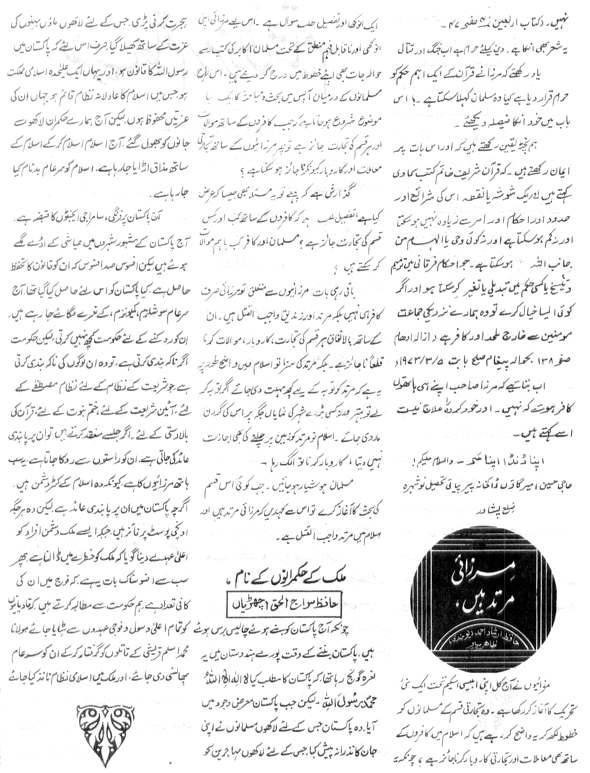 نہیں۔ (کتاب اربعین نمبر ۴ صفحہ ۴۷
یہ شعر بھی انکا ہے۔ دین کیلئے حرام ہے اب جنگ اور قتال
یاد رکھئے کہ مرزا نے قرآن کے ایک اہم حکم کو
حرام قرار دیا ہے کیا وہ مسلمان کہلا سکتا ہے۔ ہاں اس
باب میں خود انکا فیصلہ دیکھئے۔
ہم پختہ یقین رکھتے ہیں کہ اور اس بات پر
ایمان رکھتے ہیں۔ کہ قرآن شریف خاتم کتب سماوی
کہتے ہیں اور ایک شوشہ یا نقطہ اس کی شرائع اور
حدود اور احکام اور امر سے زیادہ نہیں ہو سکتا
اور نہ کم ہو سکتا ہے اور نہ کوئی وحی یا الہام من
جانب اللہ ہو سکتا ہے۔ جو احکام فرقانی میں ترمیم
و تنسیخ یا کسی حکم میں تبدیلی یا تغیر کر سکتا ہو اور اگر
کوئی ایسا خیال کرے تو وہ ہمارے نزدیک جماعت
مومنین سے خارج ملحد اور کافر ہے (ازالہ اوہام
صفحہ ۱۳۸ بحوالہ پیغام صلح بابت ۵/۳/۱۹۷۳
اب بتائیے کہ مرزا صاحب اپنے ہی ہاتھوں
کافر ہوئے کہ نہیں۔ اور خود کردہ را علاج نیست
اسے کہتے ہیں۔
اپنا ڈنڈا اپنا سر۔ والسلام علیکم!
حاجی حسین امیر گاؤں ڈاکخانہ پیر پیائی تحصیل نوشہرہ
ضلع پشاور
مرزائی
مرتد ہیں،
حافظ ارشاد احمد دیوبندی
ظاہر پیر
مرزائیوں نے آج کل اپنی ابلیسی اسکیم تحت ایک نئی
تحریک کا آغاز کر رکھا ہے۔ وہ تجارتی قسم کے مسلمانوں کو
خطوط لکھ کر یہ واضح کر رہے ہیں کہ اسلام میں کافروں کے
ساتھ بھی معاملات اور تجارتی کاروبار کرنا جائز ہے، چونکہ یہ
ایک انوکھا اور تفصیل طلب سوال ہے۔ اس لئے مرزائی اپنی
انوکھی اور ناقابل فہم منطق کے تحت مسلمان اکابر کی کتب سے
حوالہ جات بھی اپنے خطوط میں درج کر دیتے ہیں۔ اس طرح
مسلمانوں کے درمیان آپس میں بحث و مباحثہ کا ایک نیا
موضوع شروع ہو جاتا ہے کہ جب کافروں کے ساتھ موالات
اور ہر قسم کی تجارت جائز ہے تو پھر مرزائیوں کے ساتھ تجارتی
معاملات اور کاروبار کیونکر ناجائز ہو سکتا ہے؟
گذارش ہے کہ پہلے تو یہ مسئلہ بھی جیسا کہ عرض
کیا ہے تفصیل طلب ہے کہ کافروں کے ساتھ کب اور کس
قسم کی تجارت جائز ہے؟ مسلمان اور کافر کب باہم موالات
کر سکتے ہیں؟
باقی رہی بات مرزائیوں سے متعلق تو مرزائی صرف
کافر ہی نہیں بلکہ مرتد اور زندیق واجب القتل ہیں۔ ان
کے ساتھ بالاتفاق ہر قسم کی تجارت، کاروبار، موالات کرنا
قطعاً ناجائز ہے۔ بلکہ مرتد کی سزا تو اسلام میں واضح طور پر
یہ ہے کہ مرتد کو توبہ کے لئے کچھ مہلت دی جائے اگر توبہ کر
لے تو بہتر ورنہ کسی بڑے شہر کی نمایاں جگہ پر اس کی گردن
مار دی جائے۔ اسلام تو مرتد کو زمین پر چلنے کی بھی اجازت
نہیں دیتا، کاروبار کرنا تو الگ رہا۔
مسلمان ہوشیار ہو جائیں۔ جب کوئی اس قسم
کی بحث کا آغاز کرے تو اس سے کہہ دیں کہ مرزائی مرتد ہیں اور
اسلام میں مرتد واجب القتل ہے۔
ملک کے حکمرانوں کے نام،
حافظ سراج الحق، چھڑیاں
چونکہ آج پاکستان کو بنے ہوئے چالیس برس ہونے
ہیں۔ پاکستان بننے کے وقت پورے ہندوستان میں یہ
نعرہ گونج رہا تھا کہ پاکستان کا مطلب کیا لا الہ الا اللہ
محمد رسول اللہ۔ لیکن جب پاکستان معرض وجود میں
آیا، وہ پاکستان جس کے لئے لاکھوں مسلمانوں نے اپنی
جان کا نذرانہ پیش کیا، جس کے لئے لاکھوں مہاجرین کو
ہجرت کرنی پڑی، جس کے لئے لاکھوں ماؤں بہنوں کی
عزت کے ساتھ کھیلا گیا، صرف اس لئے کہ پاکستان میں
رسول اللہ کا قانون ہو، اور یہاں ایک علیحدہ اسلامی مملکت
ہو، جس میں اسلام کا عادلانہ نظام قائم ہو، جہاں ان کی
عزتیں محفوظ ہوں، لیکن آج ہمارے حکمران لاکھوں
جانوں کو بھول گئے۔ آج اسلام اسلام کر کے اسلام کے
ساتھ مذاق اڑایا جا رہا ہے۔ اسلام کو سر عام بدنام کیا
جا رہا ہے۔
آج پاکستان پر فرنگی، سامراجی ایجنٹوں کا قبضہ ہے۔
آج پاکستان کے مشہور شہروں میں عیاشی کے اڈے لگے
ہوئے ہیں لیکن افسوس صد افسوس کہ ان کو قانون کا تحفظ
حاصل ہے، کیا پاکستان کو اس لئے حاصل کیا گیا تھا، آج
سر عام سوشلزم، کمیونزم کے نعرے لگائے جا رہے ہیں۔
ان کو روکنے کے لئے حکومت کچھ نہیں کرتی، لیکن حکومت
اگر ناکہ بندی کرتی ہے، تو وہ ان لوگوں کی ناکہ بندی کرتی
ہے جو شریعت کے نظام کے لئے نظام مصطفے کے
لئے، آئین شریعت کے لئے، ختم نبوت کے لئے، قرآن کی
بالادستی کے لئے۔ اگر جلسے منعقد کرتے ہیں تو ان پر پابندی
عائد کی جاتی ہے۔ ان کو راستوں سے روکا جاتا ہے یہ سب
ہاتھ مرزائیوں کا ہے کیونکہ وہ اسلام کے کٹر دشمن ہیں۔
اگرچہ پاکستان میں ان پر پابندی عائد ہے، لیکن وہ ہر جگہ
اونچی پوسٹ پر فائز ہیں، جبکہ ایسے ملک دشمن افراد کو
اعلیٰ عہدے دینا گویا کہ ملک کو خطرے میں ڈالنا ہے، پھر
سب سے افسوسناک بات یہ ہے کہ فوج میں ان کی
کافی تعداد ہے، ہم حکومت سے مطالبہ کرتے ہیں کہ قادیانیوں
کو تمام اعلیٰ سول و فوجی عہدوں سے ہٹایا جائے مولانا
محمد اسلم قریشی کے قاتلوں کو گرفتار کر کے ان کو سر عام
پھانسی دی جائے، اور ملک میں اسلامی نظام نافذ کیا جائے